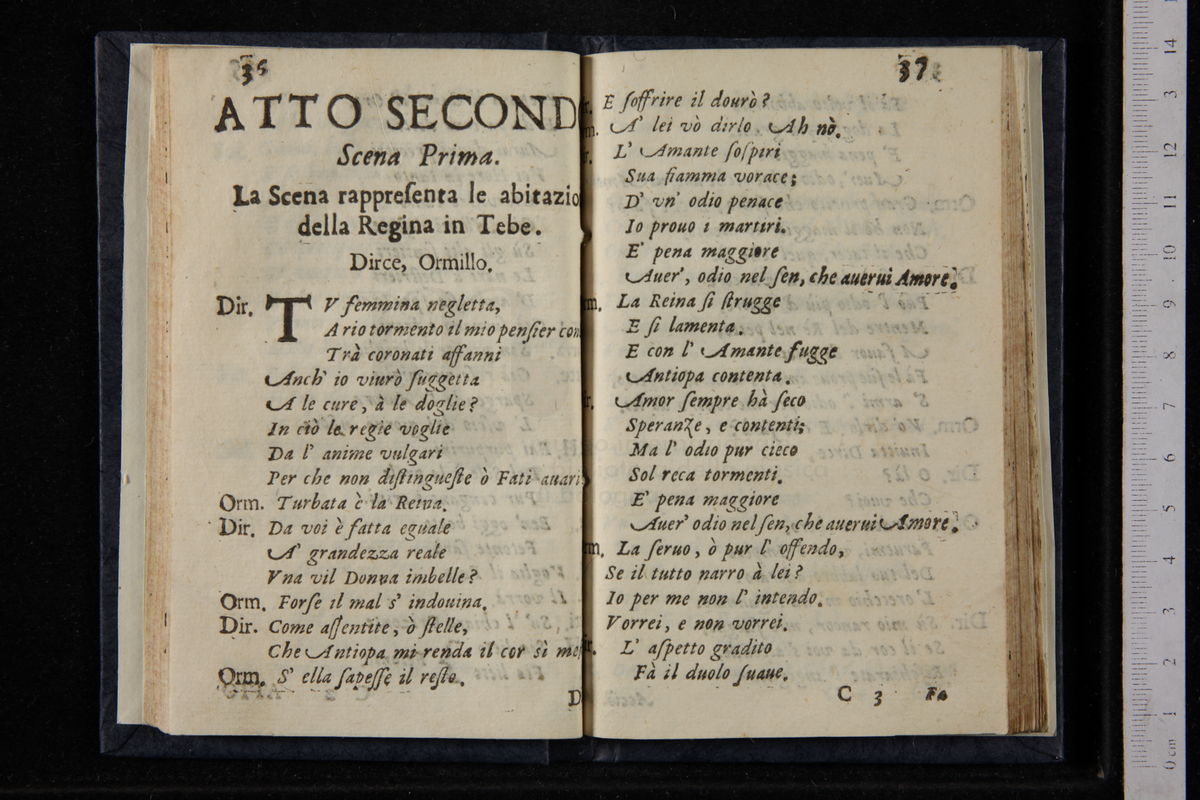 36
ATTO SECOND
Scena Prima.
La Scena rappreſenta le abitazio
della Regina in Tebe.
Dirce, Ormillo.
Dir. TV femmina negletta,
A rio tormento il mio penſier con
Trà coronati affanni
Anch' io viurò ſuggetta
A le cure, à le doglie?
In ciò le regie voglie
Da l' anime vulgari
Per che non diſtingueſte ò Fati auari
Orm. Turbata è la Reina.
Dir. Da voi è fatta eguale
A' grandezza reale
Vna vil Donna imbelle?
Orm. Forſe il mal s' indouina.
Dir. Come aſſentite, ò ſtelle,
Che Antiopa mi renda il cor sì me
Orm. S' ella ſapeſſe il reſto.
D
37
E ſoffrire il dourò?
m. A' lei vò dirlo Ah nò.
r. L' Amante ſoſpiri
Sua fiamma vorace;
D' vn' odio penace
Io prouo i martiri.
E' pena maggiore
Auer', odio nel ſen, che auerui Amore.
m. La Reina ſi ſtrugge
E ſi lamenta.
E con l' Amante fugge
Antiopa contenta.
r. Amor ſempre hà ſeco
Speranze, e contenti;
Ma l' odio pur cieco
Sol reca tormenti.
E' pena maggiore
Auer' odio nel ſen, che auerui Amore.
m. La ſeruo, ò pur l' offendo,
Se il tutto narro à lei?
Io per me non l' intendo.
Vorrei, e non vorrei.
r. L' aſpetto gradito
Fà il duolo ſuaue.
C 3 Fa